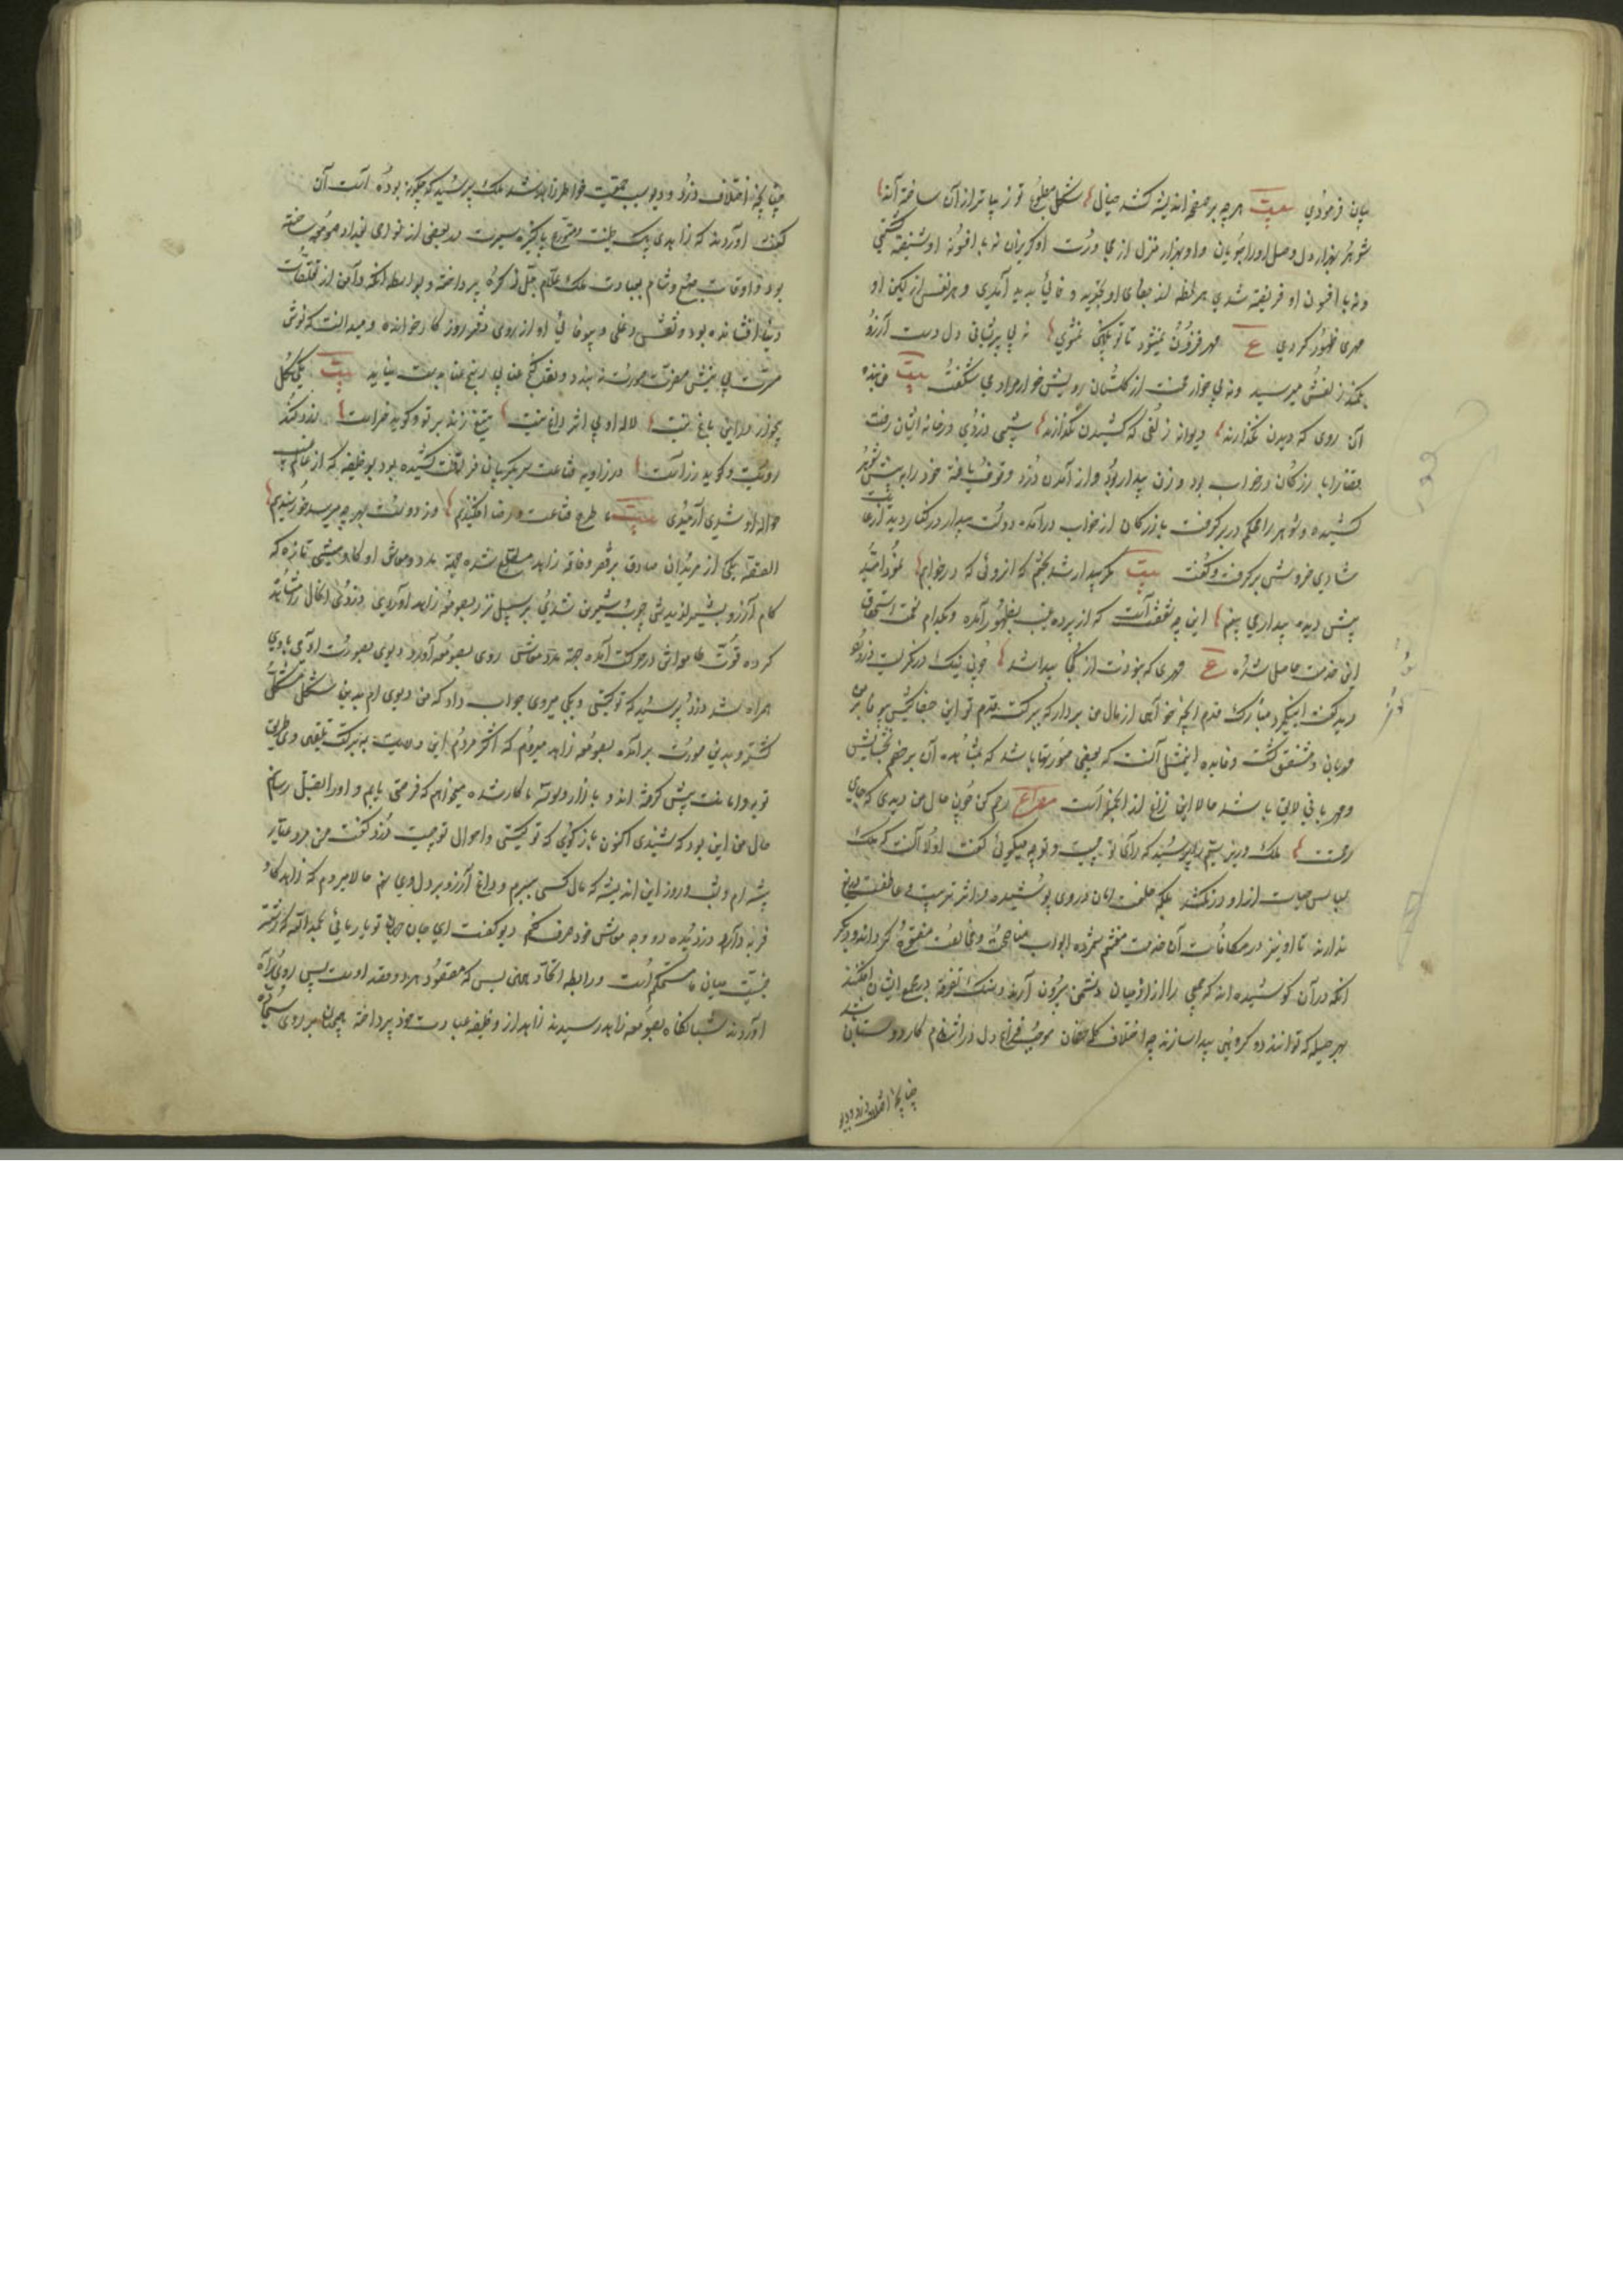 بیان فرمودی بیت هرچه بر صفحه اندیشه کشد خیال شکل مطبوع تو زیباتر از آن ساخته اند
شوهر بهزار دل وصل او را جویان و او بهزار منزل از وی دورت او گریزان نه با افسونه او شیفته گشتی
و نه با افسون او فریفته شدی هر لحظه از بجای او بتجدید وفائی پدید آمدی و هر نفس از کین او
مهری ظهور کردی ع مهر فزون نمیشود تا تو بکین نمیشوی نه بی پریشانی دل دست آرزو
بکمند زلفش میرسید و نه بی خار محنت از گلستان رویش خار مرادی شکفت بیت من بنده
آن روی که دیدن نگذارند دیوانه زلفی که کشیدن نگذارند شبی دزدی در خانه ایشان رفت
قضا را بازرگان در خواب بود و زن بیدار بود و از آمدن دزد وقوف یافته خود را به پیش شوهر
کشیده و شوهر را محکم در بر گرفت بازرگان از خواب درآمده دولت بیدار در کنار دید از غایت
شادی خروش برگرفت و گفت بیت مگر بیدار شد بختم که از روئی که در خوابم نبود امید
پیش دیده بیداری بینم این چه شفقت است که از پرده غیب بظهور آمده و بکدام نعمت استحقاق
این خدمت حاصل شده ع مهری که نبودت از کجا پیدا شد چون نیک درنگریست دزد را
دید گفت ای نیکمرد مبارک قدم آنچه خواهی از مال من بردار که ببرکت قدم تو این جفاکیش بیوفا بر من
مهربان و مشفق گشت و فایده این مثل آنست که بعضی صورتها باشد که بمشاهده آن بر خصم بخشایش
و مهربانی لایق باشد حالا این زاغ از آنجمله است مصراع رحم کن چون حال من دیدی که جای
رحمت ملک وزیر سیم را پرسید که رای تو چیست و تو چه میگوئی گفت اولا آنست که ملک
لباس حیات از او درنکشد بلکه خلعت امان در وی پوشیده اثر تربیت و عاطفت دریغ
ندارند تا او نیز در مکافات آن خدمت مغتنم شمرده ابواب مناصحت و مخالصت منفتح گرداند و دیگر
آنکه در آن کوشیده اند که جمعی را از میان دشمن بیرون آرند و سنگ تفرقه در جمع ایشان افکنند
بهر حیله که توانند دو گروهی پیدا سازند چه اختلاف کلمه خصمان موجب فراغ دل و انتظام کار دوستان باشد
چنانچه اختلاف دزد و دیو
چنانچه اختلاف دزد و دیو سبب جمعیت خاطر زاهد شد ملک پرسید که چگونه بوده است آن
گفت آورده اند که زاهدی پاک طینت متورع پاکیزه سیرت در بعضی از نواحی بغداد صومعه ساخته
بود و اوقات صبح و شام بعبادت ملک علام جل ذکره پرداخته و بواسطه آنکه دامن از تعلقات
دنیا افشانده بود و نقش دغلی و بیوفائی او از روی دفتر روزگار خوانده و میدانست که نوش
مسرت بی نیش مضرت صورت نبندد و نقد گنج غنا بی رنج عنا بدست نیاید بیت یکی گل
بیخار در این باغ نیست لاله او بی اثر داغ نیست تیغ زند بر تو و گوید خراست
زردکند رویت و گوید زراست در زاویه قناعت سر بگریبان فراغت کشیده بود بوظیفه که از عالم غیب
حواله او شدی آرمیدی بیت ما طرح قناعت و رضا افکندیم وز دوست بهرچه میرسد خورسندیم
القصه یکی از مریدان صادق بر فقر و فاقه زاهد مطلع شده جهة مدد معاش او گاومیشی تازه که
کام آرزو بشیر لذیذش چرب و شیرین شدی بر سبیل نذر بصومعه زاهد آورد و دزدی آنحال مشاهده
کرده قوت طامعه اش در حرکت آمده جهة مدد معاش روی بصومعه آورد و دیوی بصورت آدمی با وی
همراه شد دزد پرسید که تو کیستی و بکجا میروی جواب داد که من دیوی ام بدین شکل متشکل
گشته و بدین صورت برآمده بصومعه زاهد میروم که اکثر مردم این ولایت ببرکت تلقین وی طریق
توبه و انابت پیش گرفته اند و بازار وسوسه ما کاسد شده میخواهم که فرصتی یابم و او را بقتل رسانم
حال من این بود که شنیدی اکنون بازگوئی که تو کیستی و احوال تو چیست دزد گفت من مرد عیار
پیشه ام و شب و روز این اندیشه که مال کسی ببرم و داغ آرزو بر دل وی نهم حالا میروم که زاهد گاو
فربه دارد دزدیده در وجه معاش خود صرف کنم دیو گفت ای جان جهان تو یار مائی بحمدالله که رشته
جنسیت میان ما مستحکم است و رابطه اتحاد همین بس که مقصود هر دو قصد اوست پس روی براه
آوردند شبانگاه بصومعه زاهد رسیدند زاهد از وظیفه عبادت خود پرداخته همچنان بر روی سجاده